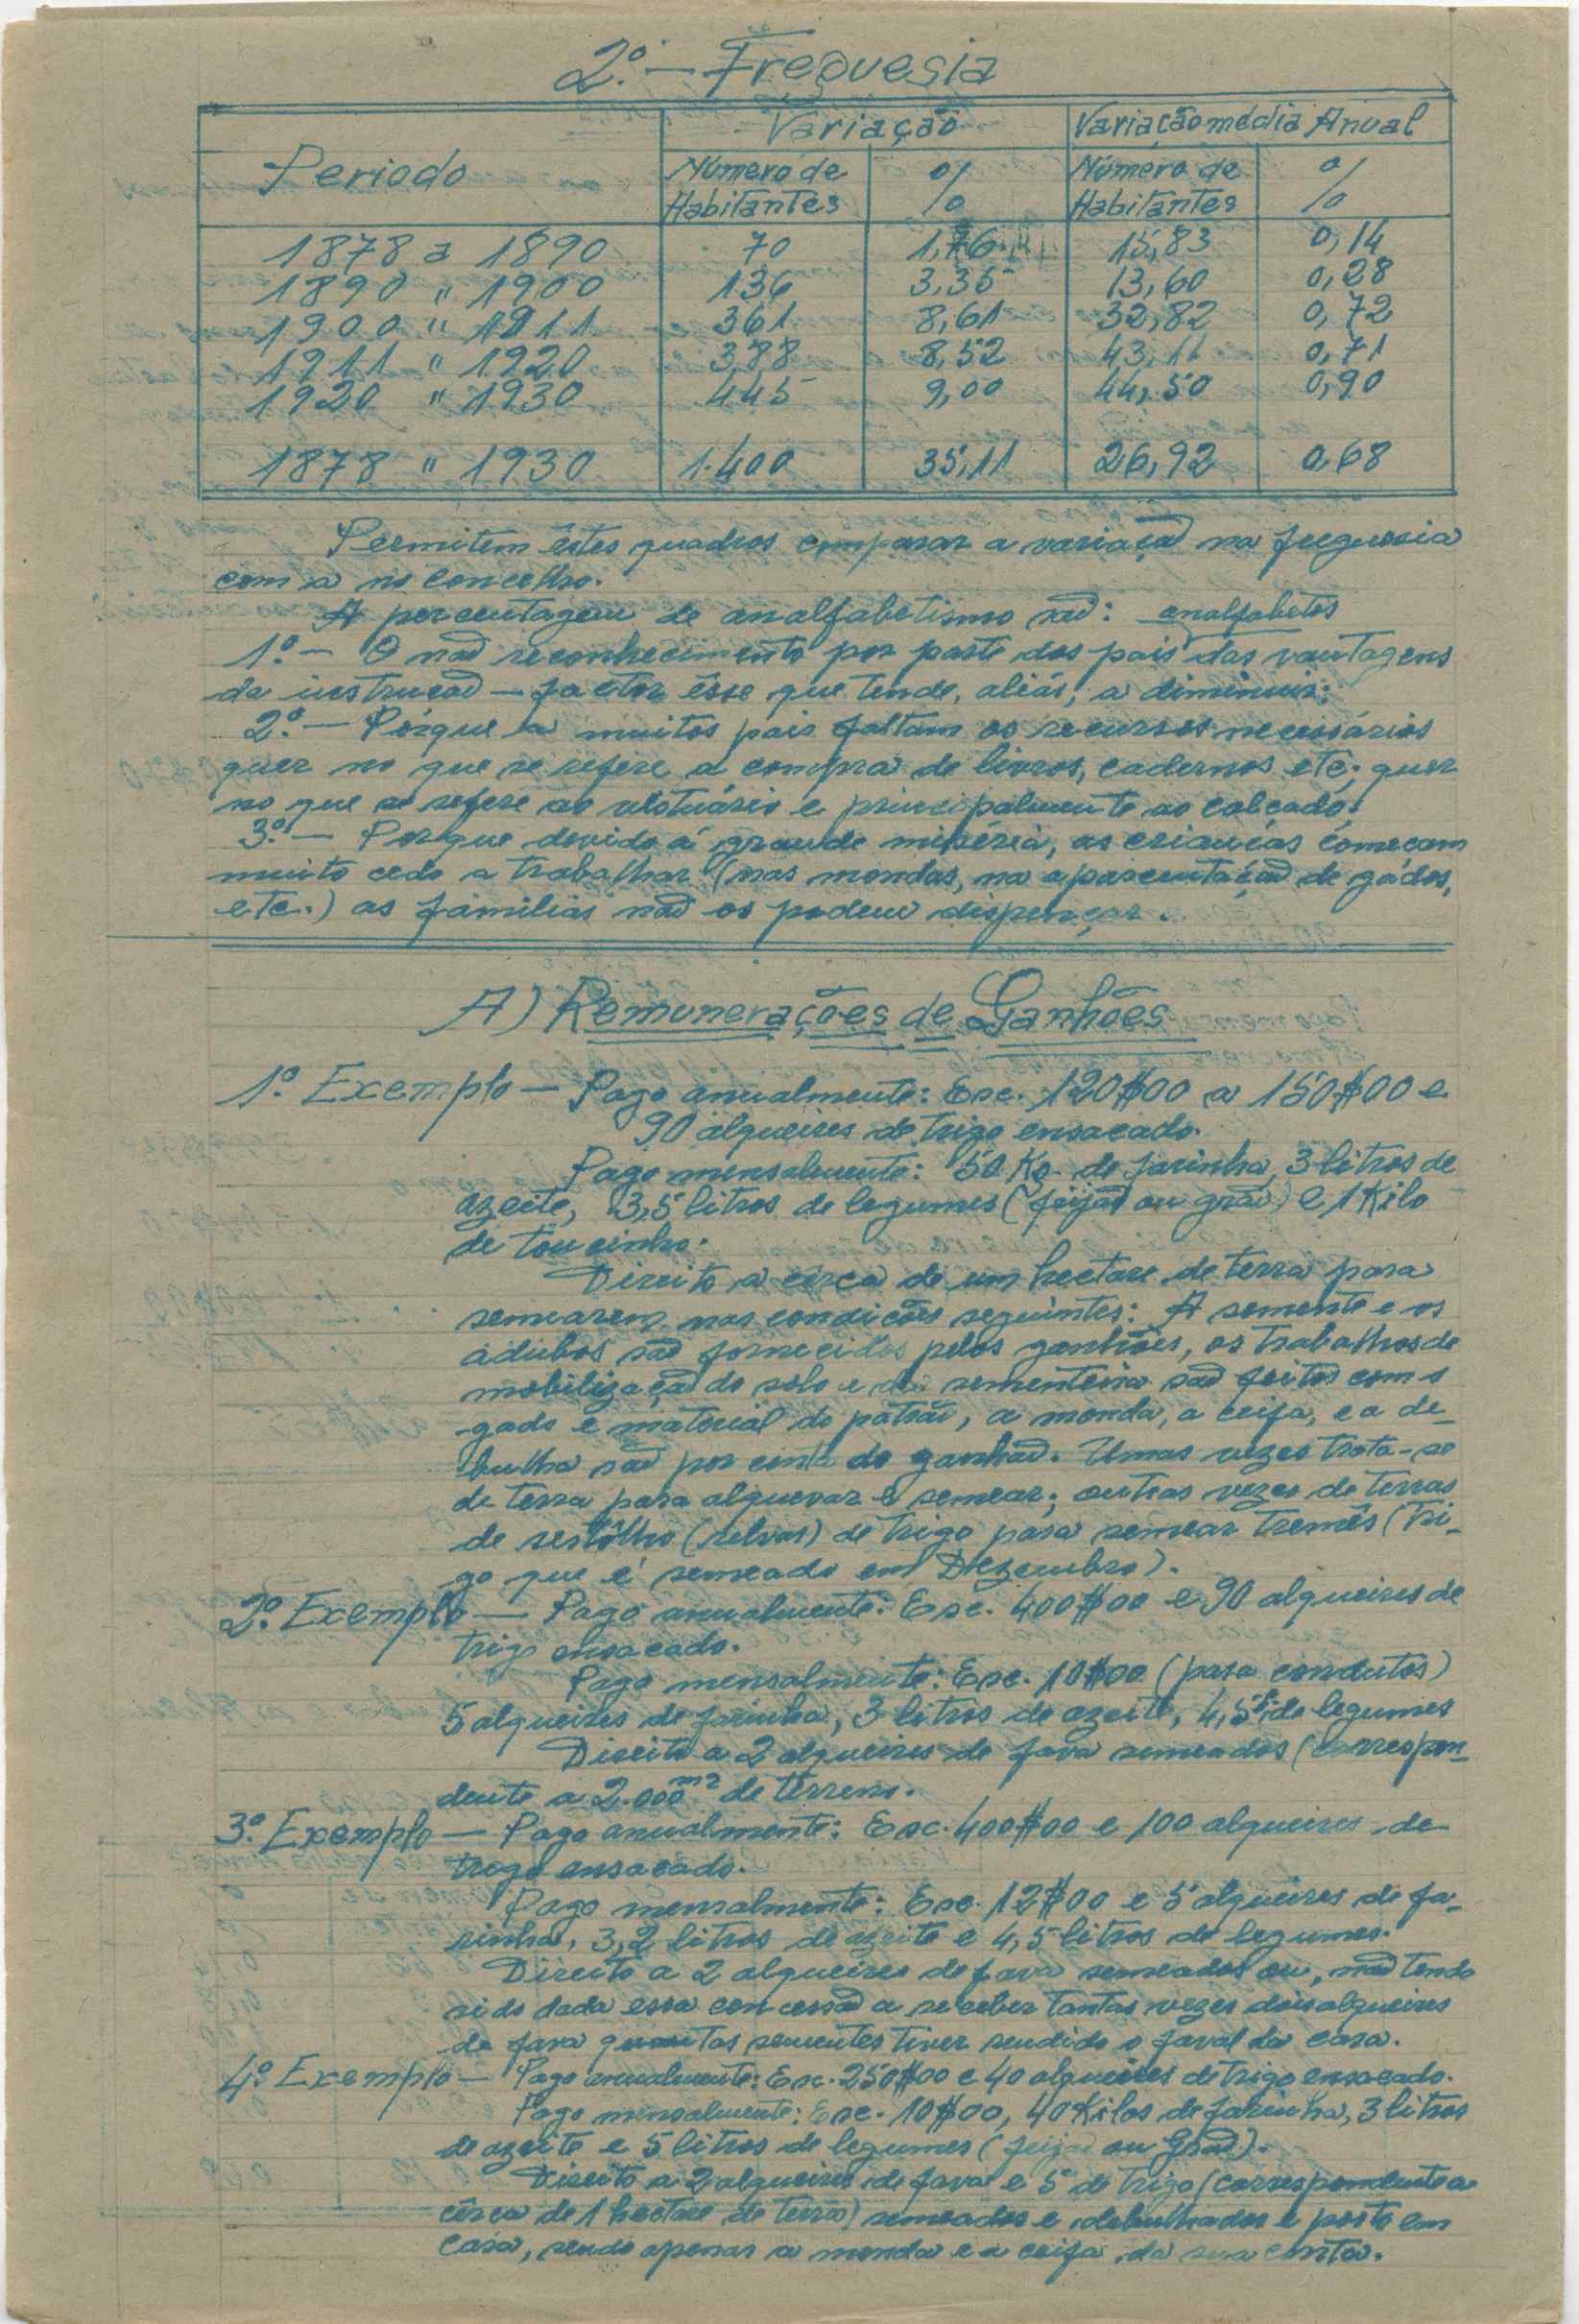 2º. — Freguesia
Periodo Variação Variação média Anual
Número de Habitantes % Número de Habitantes %
1878 a 1890 70 1,76 15,83 0,14
1890 " 1900 136 3,35 13,60 0,28
1900 " 1911 361 8,61 32,82 0,72
1911 " 1920 388 8,52 43,11 0,71
1920 " 1930 445 9,00 44,50 0,90
1878 " 1930 1.400 35,11 26,92 0,68
Permitem êstes quadros comparar a variação na freguesia
com a no concelho.
A percentagem de analfabetismo são: analfabetos
1º. — O não reconhecimento por parte dos pais das vantagens
da instrução — factor êsse que tende, aliás, a diminuir;
2º. — Porque a muitos pais faltam os recursos necessários
quer no que se refere a compra de livros, cadernos etc; quer
no que se refere ao vestuário e principalmente ao calçado;
3º. — Porque devido á grande miséria, as crianças começam
muito cedo a trabalhar (nas mondas, na apascentação de gados,
etc.) as familias não os podem dispençar.
A) Remunerações de Ganhões
1º. Exemplo — Pago anualmente: Esc. 120$00 a 150$00 e
90 alqueires de trigo ensacado.
Pago mensalmente: 50 Kg. de farinha, 3 litros de
azeite, 3,5 litros de legumes (feijão ou grão) e 1 Kilo
de toucinho.
Direito a cêrca de um hectare de terra para
semearem nas condições seguintes: A semente e os
adubos são fornecidos pelos ganhões, os trabalhos de
mobilização do solo e da sementeira são feitos com o
gado e material do patrão, a monda, a ceifa, e a de-
bulha são por conta do ganhão. Umas vezes trata-se
de terra para alquevar e semear; outras vezes de terras
de restôlho (relvas) de trigo para semear tremês (Tri-
go que é semeado em Dezembro).
2º. Exemplo — Pago anualmente: Esc. 400$00 e 90 alqueires de
trigo ensacado.
Pago mensalmente: Esc. 10$00 (para condutos)
5 alqueires de farinha, 3 litros de azeite, 4,5 l. de legumes
Direito a 2 alqueires de fava semeados (correspon-
dente a 2.000 m2 de terreno.
3º. Exemplo — Pago anualmente: Esc. 400$00 e 100 alqueires de
trigo ensacado.
Pago mensalmente: Esc. 12$00 e 5 alqueires de fa-
rinha, 3,2 litros de azeite e 4,5 litros de legumes.
Direito a 2 alqueires de fava semeados ou, não tendo
sido dada essa concessão a receber tantas vezes dois alqueires
de fava quantas sementes tiver rendido o faval da casa.
4º. Exemplo — Pago anualmente: Esc. 250$00 e 40 alqueires de trigo ensacado.
Pago mensalmente: Esc. 10$00, 40 Kilos de farinha, 3 litros
de azeite e 5 litros de legumes (feijão ou Grão).
Direito a 2 alqueires de fava e 5 de trigo (correspondente a
cêrca de 1 hectare de terra) semeados e debulhados e posto em
casa, sendo apenas a monda e a ceifa da sua conta.